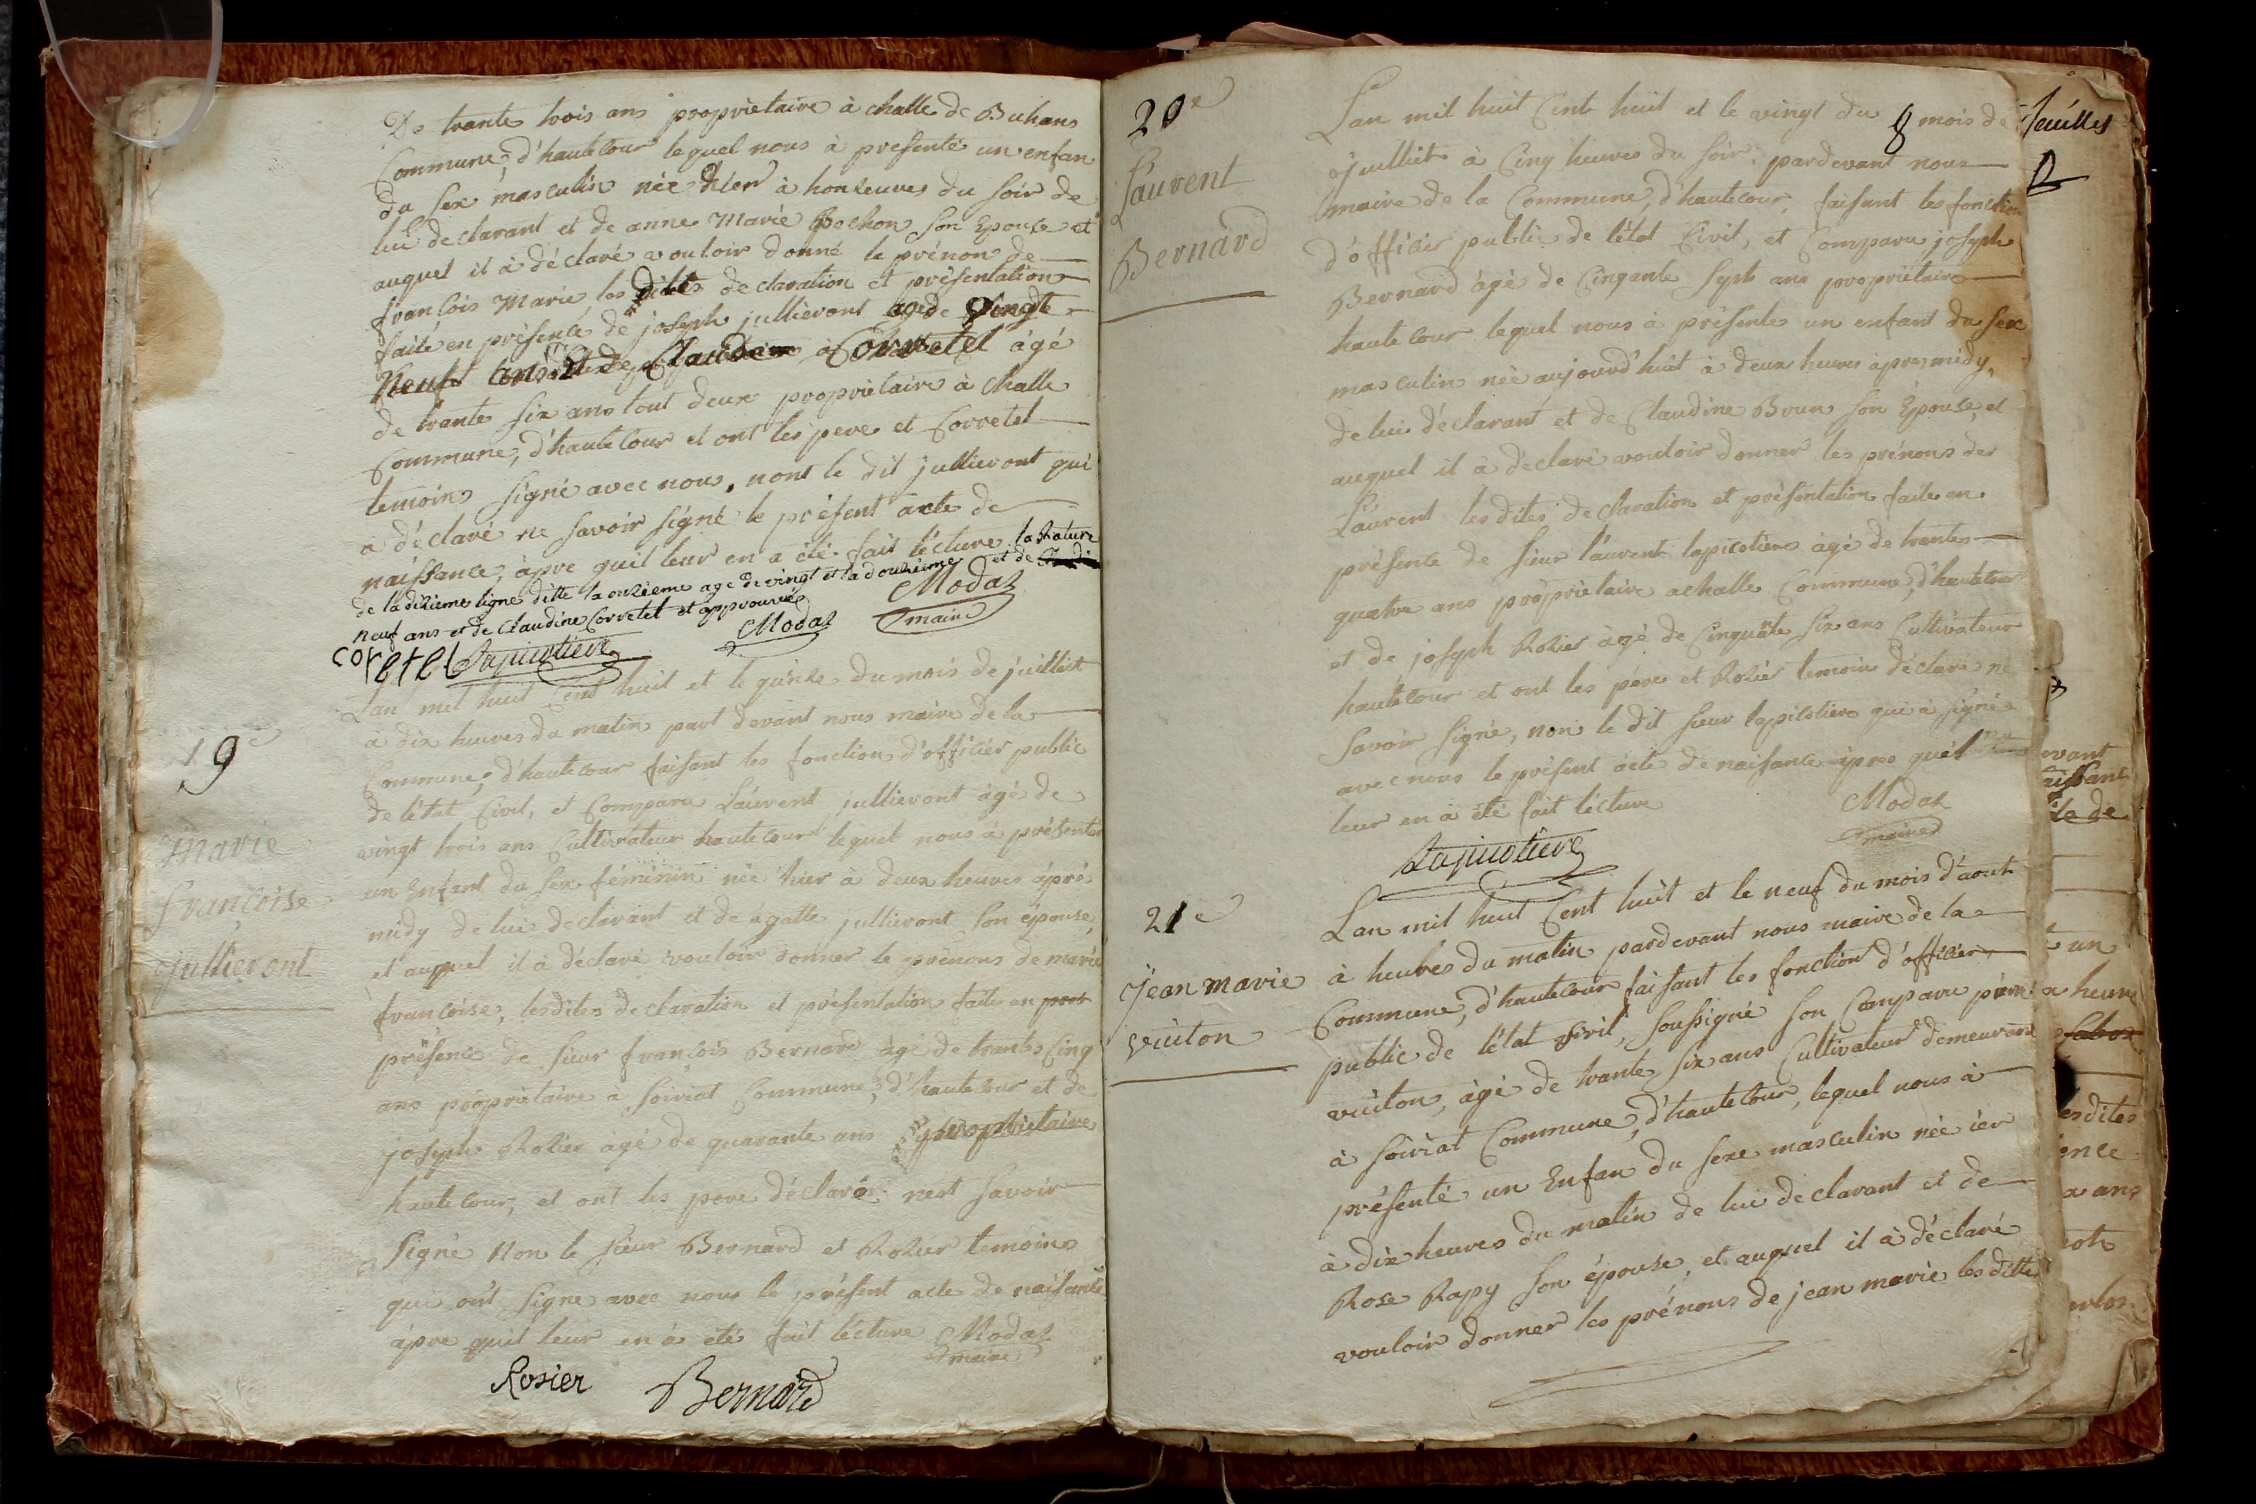 De trante trois ans propriétaire à challe de Buhans
Commune, d'hautecour lequel nous à presenté un enfan
du sex masculin née hier à honzeures du soir de
lui declarant et de anne Marie Bochon son Epouse et
auquel il à déclaré vouloir donné le prénon de
françois Marie les dittes declaration et présentation
faite en présence de joseph jullieront agé de Vingt
Neuf ans et de Claudin Corretel âgé
de trante six ans tout deux propriétaire à challe
Commune, d'hautecour et ont les pere et Corretel
temoins signé avec nous, nont le dit jullieront qui
a déclaré ne savoir signé le présent acte de
naissance, àpre quil leur en a été fait lécture la Rature
de la dixieme ligne ditte la onzieme age de vingt et la douzième et de
neuf ans et de Claudine Corretel et approuvée Modas
corretel Lapicotiere Modas maire
19e
Marie
françoise
jullieront
Lan mil huit Cent huit et le quinze du mois de juilliet
à dix heures du matin part devant nous maire de la
Commune, d'hautecour faisant les fonction d'officier public
de l'état Civil, et Comparu Laurent jullieront âgé de
vingt trois ans Cultivateur hautecour lequel nous à présenté
un Enfant du sex féminin née hier a deux heures àpré
midy de lui declarant et de agatte jullieront son épouse,
et auquel il à déclaré vouloir donner le prénons de marie
francoise, lesdites declaration et présentation faite en
présence de sieur françois Bernard àgé de trantes Cinq
ans propriétaire à soiriat Commune, d'hautecour et de
joseph Rozier âgé de quarante ans propriétaire
hautecour, et ont les pere déclaré nest savoir
signé Non le sieur Bernard et Rozier temoins
qui ont signe avec nous le présent acte de naisance
àpre quil leur en à eté fait lécture Modas
maire
Rosier Bernard
20e
Laurent
Bernard
Lan mil huit Cent huit et le vingt du mois de
juilliet à Cinq heures du soir, pardevant nous
maire de la Commune, d'hautecour, faisant les fonction
d'officier public de l'état Civil, et Comparu joseph
Bernard àgé de Cinqante sept ans propriétaire
hautecour lequel nous à présente un enfant du sex
masculin née aujourd'huit à deux heures àpres midy,
de lui déclarant et de Claudine Brun son Epouse, et
auquel il à déclaré vouloir donner les prénons de
Laurent lesdites declaration et présentation faite en
présence de sieur laurent lapicotiere àgé de trantes
quatre ans propriétaire achalle Commune, d'hautecour
et de joseph Rozier àgé de Cinquante six ans Cultivateur
hautecour et ont les pére et Rozier temoin déclaré ne
savoir signé, non le dit sieur lapicotiere qui à signé
avec nous le présent acte de naisance àpres quil
leur en à été fait lécture Modas
maire
Lapicotiere
21e
jean marie
vuiton
Lan mil huit Cent huit et le neuf du mois d'aout
à heures du matin pardevant nous maire de la
Commune, d'hautecour faisant les fonction d'officier
public de l'état Civil, soussigné son Comparu
vuiton, àgé de trante six ans Cultivateur demeurant
à soiriat Commune, d'hautecour, lequel nous à
présenté un Enfan du sexe masculin née ier
à dix heures du matin de lui declarant et de
Rose Rapy son épouse, et auquel il à déclaré
vouloir donner les prénons de jean marie les ditte
8 feuillet